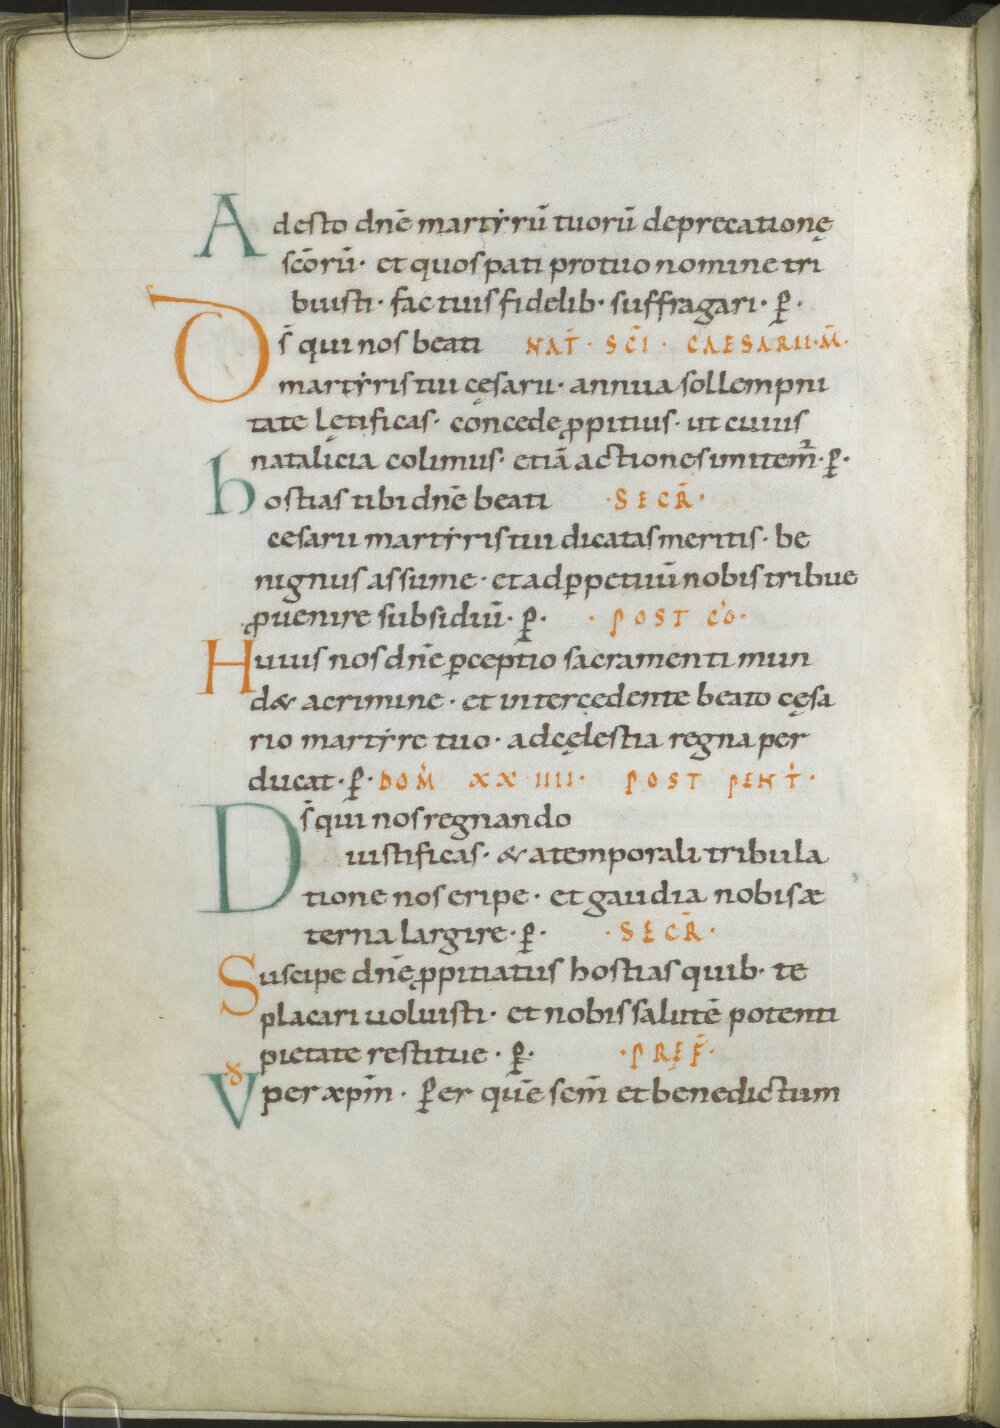 Adesto dnē martẏrū tuorū deprecationę
scōrū· et quos pati pro tuo nomine tri
buisti· fac tuis fidelib· suffragari· p̄·
Ds̄ qui nos beati NAT̄· SCĪ· CAESARII·M̄·
martẏris tui cęsarii· annua sollempni
tate lętificas· concede ꝓpitius· ut cuius
natalicia colimus· etiā actiones imitem̄· p̄·
hostias tibi dnē beati ·SECR̄·
cesarii martẏris tui dicatas meritis· be
nignus assume· et ad ꝑpetuū nobis tribue
ꝓuenire subsidiū· p̄· ·POST CŌ·
Huius nos dnē ꝑceptio sacramenti mun
d& a crimine· et intercedente beato cęsa
rio martẏre tuo· ad cęlestia regna per
ducat· p̄· DOM̄ XXIIII· POST PENT̄·
Ds̄ qui nos regnando
iustificas· & a temporali tribula
tione nos eripe· et gaudia nobis æ
terna largire· p̄· ·SECR̄·
Suscipe dnē ꝓpitiatus hostias quib· te
placari uoluisti· et nobis salutē potenti
pietate restitue· p̄· ·PRĘF̄·
V per xpm̄· Per quē sem̄ et benedictum